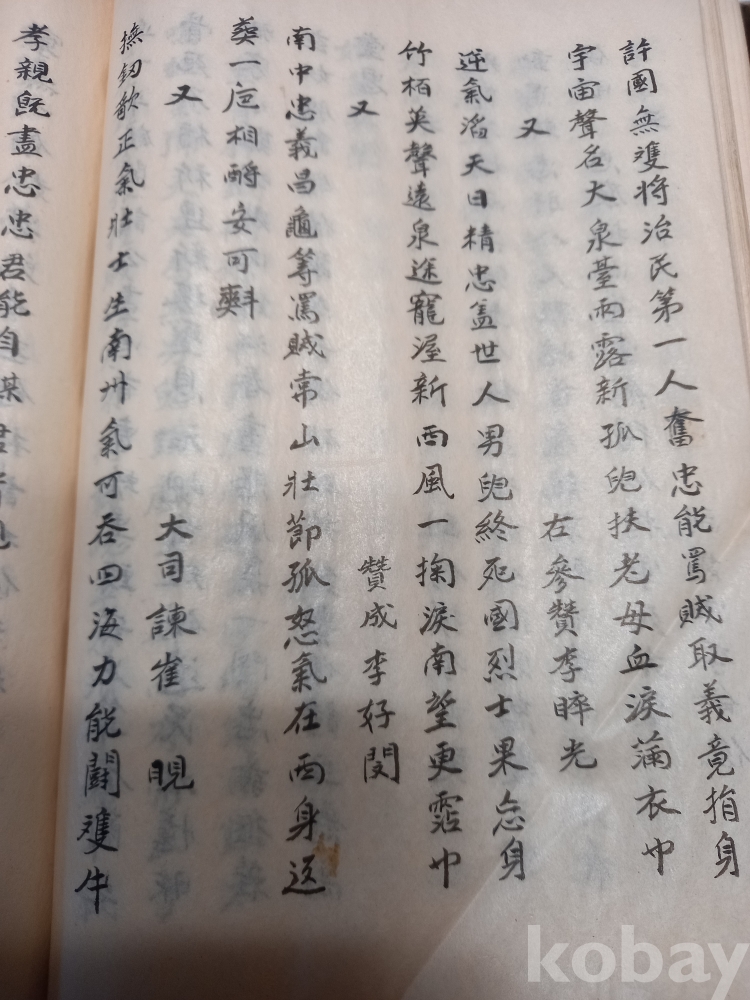 許國無雙將治民第一人奮忠能罵賊取義竟捐身
宇宙聲名大泉臺雨露新孤兒扶老母血淚滿衣巾
又 右參贊李睟光
逆氣滔天日精忠盖世人男兒終死國烈士果忘身
竹栢英聲遠泉途寵渥新西風一掬淚南望更霑巾
又 贊成李好閔
南中忠義昌龜等罵賊常山壯節孤怒氣在西身返
葬一巵相酹安可㪺
又 大司諫崔晛
撫釰歌正氣壯士生南州氣可吞四海力能鬪雙牛
孝親旣盡忠忠君能自謀君
kobay